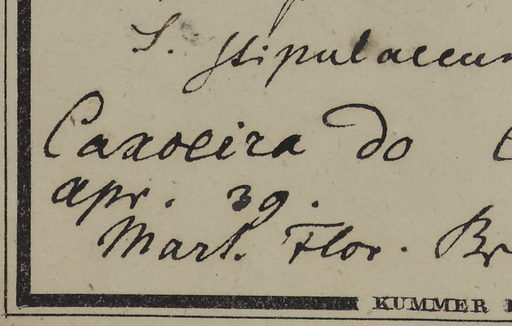 S. stipulaceum
Caxoeira do
apr. 39.
Mart. Flor. Br
KUMMER